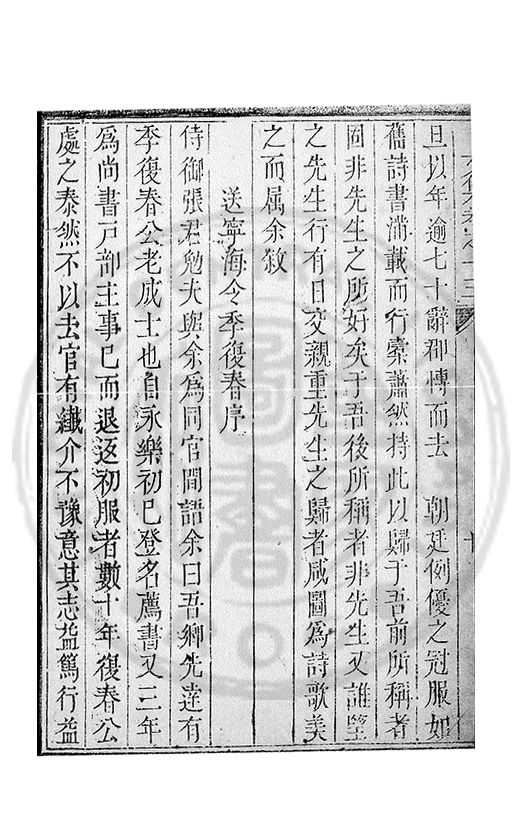 且以年逾七十辭郡愽而去　朝廷例優之冠服如
舊詩書滿載而行槖蕭然持此以歸于吾前所稱者
固非先生之所好矣于吾後所稱者非先生又誰望
之先生行有日交親重先生之歸者咸圖爲詩歌美
之而属余敘
送寧海令季復春序
侍御張君勉夫與余爲同官間語余曰吾鄉先達有
季復春公老成士也自永樂初已登名薦書又三年
爲尚書戸部主事已而退返初服者數十年復春公
處之泰然不以去官有纖介不豫意其志益篤行益